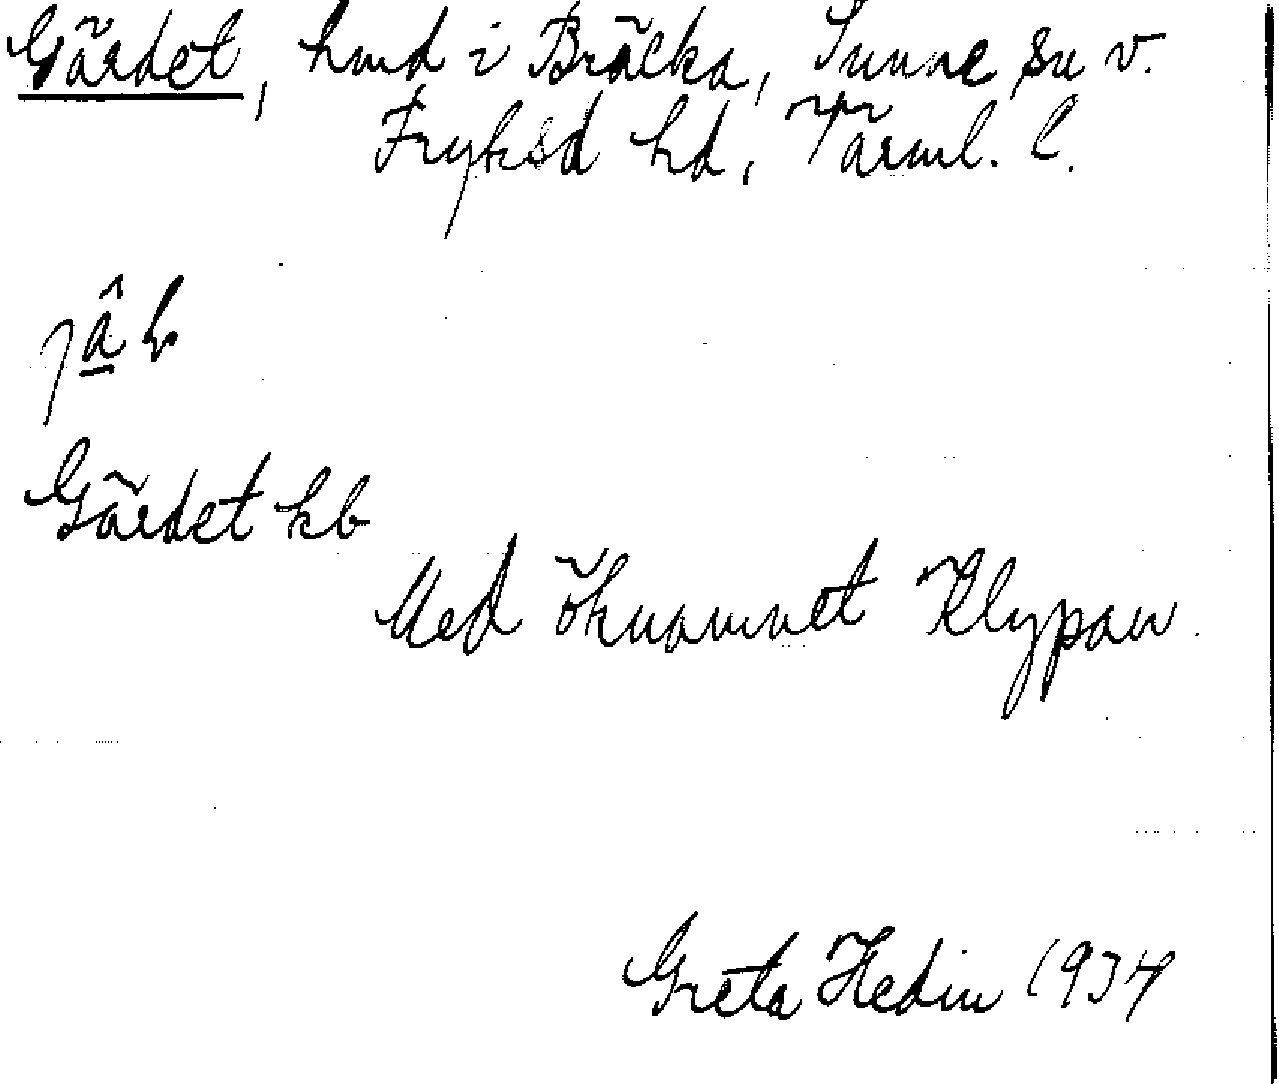 Gärdet, hmd i Bräcka, Sunne sn v.
Fryksd hd, Värml. l.
Gärdet kb
Med öknamnet Klypan.
Greta Hedin 1934